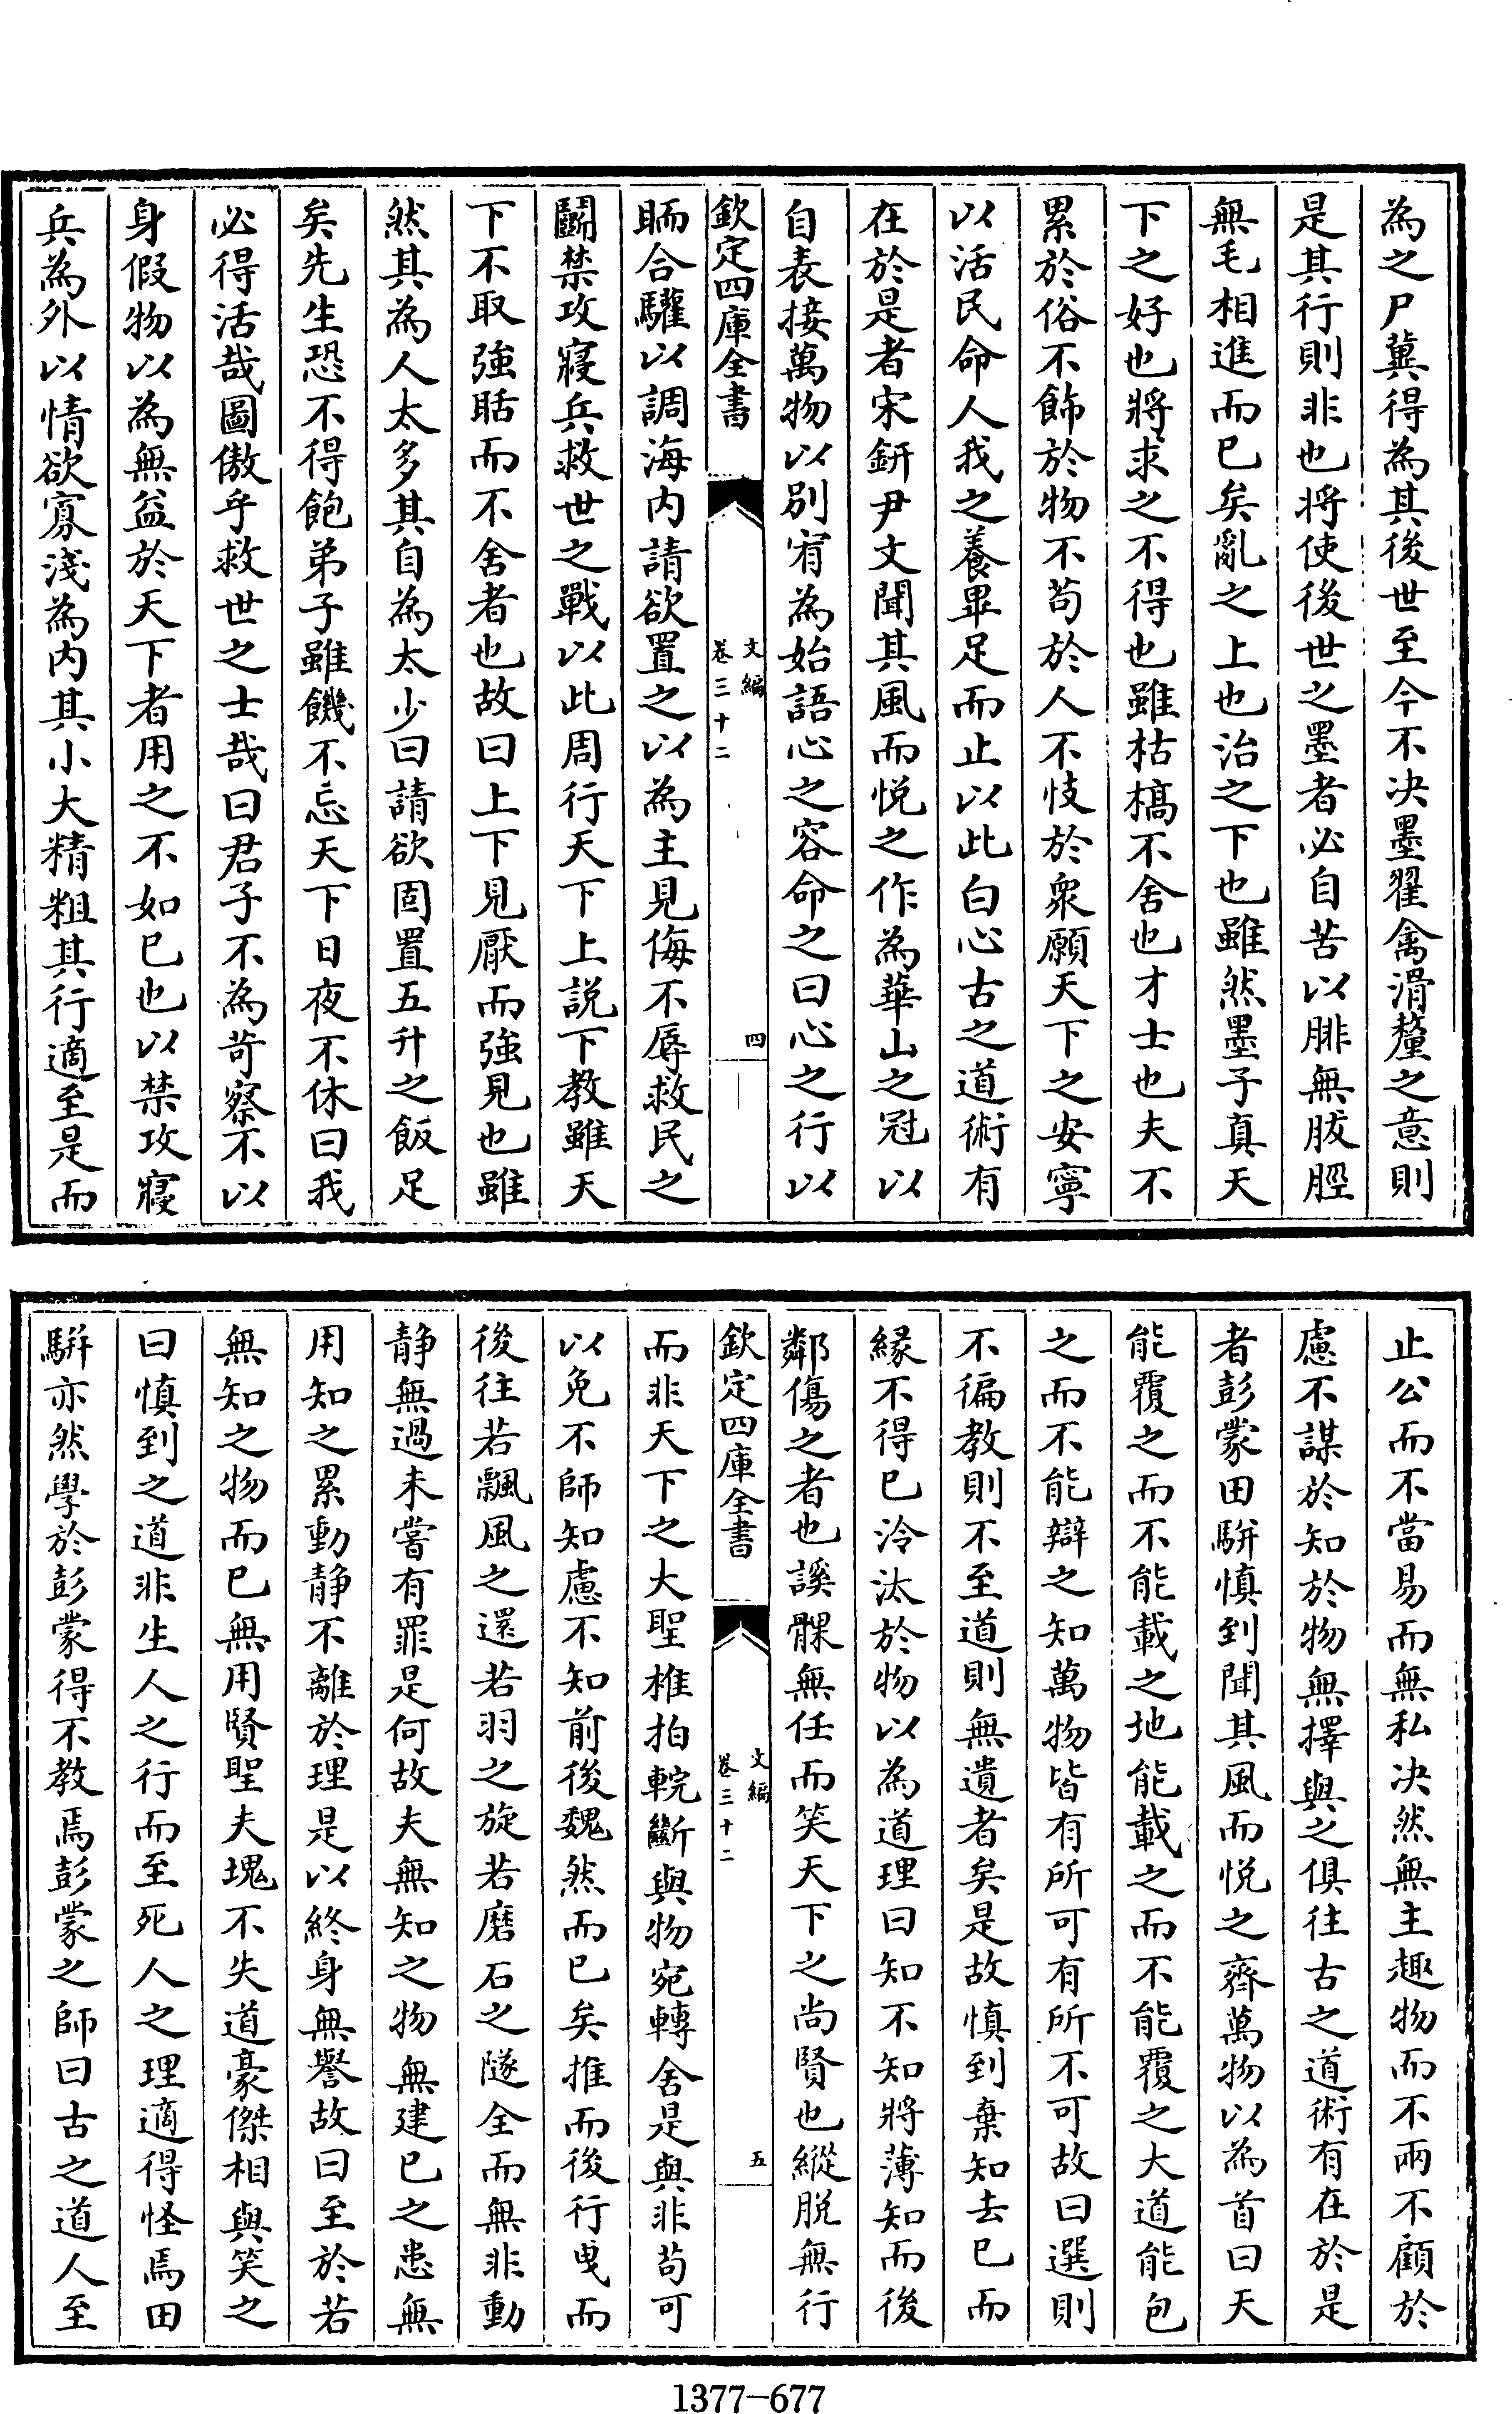 為之尸冀得為其後世至今不决墨翟禽滑釐之意則
是其行則非也将使後世之墨者必自苦以腓無胈脛
無毛相進而已矣亂之上也治之下也雖然墨子真天
下之好也將求之不得也雖枯槁不舍也才士也夫不
累於俗不飾於物不苟於人不忮於衆願天下之安寧
以活民命人我之養畢足而止以此白心古之道術有
在於是者宋鈃尹文聞其風而悦之作為華山之冠以
自表接萬物以别宥為始語心之容命之曰心之行以
欽定四庫全書
文編
卷三十二
四
聏合驩以調海内請欲置之以為主見侮不辱救民之
鬭禁攻寢兵救世之戰以此周行天下上説下教雖天
下不取強聒而不舍者也故曰上下見厭而強見也雖
然其為人太多其自為太少曰請欲固置五升之飯足
矣先生恐不得飽弟子雖饑不忘天下日夜不休曰我
必得活哉圖傲乎救世之士哉曰君子不為苛察不以
身假物以為無益於天下者用之不如已也以禁攻寢
兵為外以情欲寡淺為内其小大精粗其行適至是而
止公而不當易而無私决然無主趣物而不兩不顧於
慮不謀於知於物無擇與之俱往古之道術有在於是
者彭蒙田駢慎到聞其風而悦之齊萬物以為首曰天
能覆之而不能載之地能載之而不能覆之大道能包
之而不能辯之知萬物皆有所可有所不可故曰選則
不徧教則不至道則無遺者矣是故慎到棄知去已而
緣不得已泠汰於物以為道理曰知不知將薄知而後
鄰傷之者也謑髁無任而笑天下之尚賢也縱脱無行
欽定四庫全書
文編
卷三十二
五
而非天下之大聖椎拍輐斷與物宛轉舍是與非苟可
以免不師知慮不知前後魏然而已矣推而後行曳而
後往若飄風之還若羽之旋若磨石之隧全而無非動
静無過未嘗有罪是何故夫無知之物無建已之患無
用知之累動静不離於理是以終身無譽故曰至於若
無知之物而已無用賢聖夫塊不失道豪傑相與笑之
曰慎到之道非生人之行而至死人之理適得怪焉田
駢亦然學於彭蒙得不教焉彭蒙之師曰古之道人至
1377-677